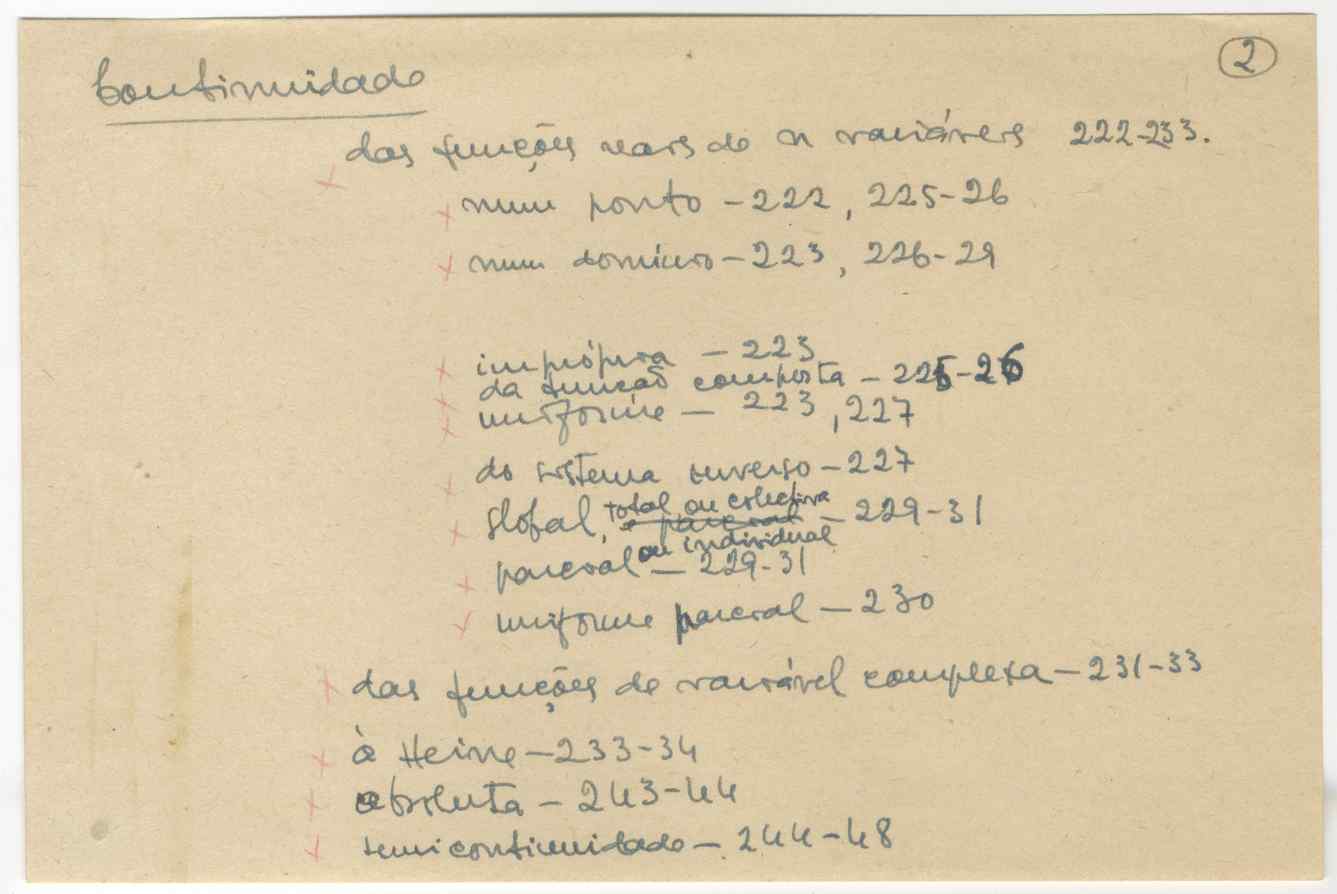 2
Continuidade
das funções reais de n variáveis 222-233.
num ponto - 222, 225-26
num domínio - 223, 226-29
imprópria - 223
da função composta - 225-26
uniforme - 223, 227
do sistema inverso - 227
global, total ou colectiva - 229-31
parcial ou individual - 229-31
uniforme parcial - 230
das funções de variável complexa - 231-33
à Heine - 233-34
absoluta - 243-44
semicontinuidade - 244-48